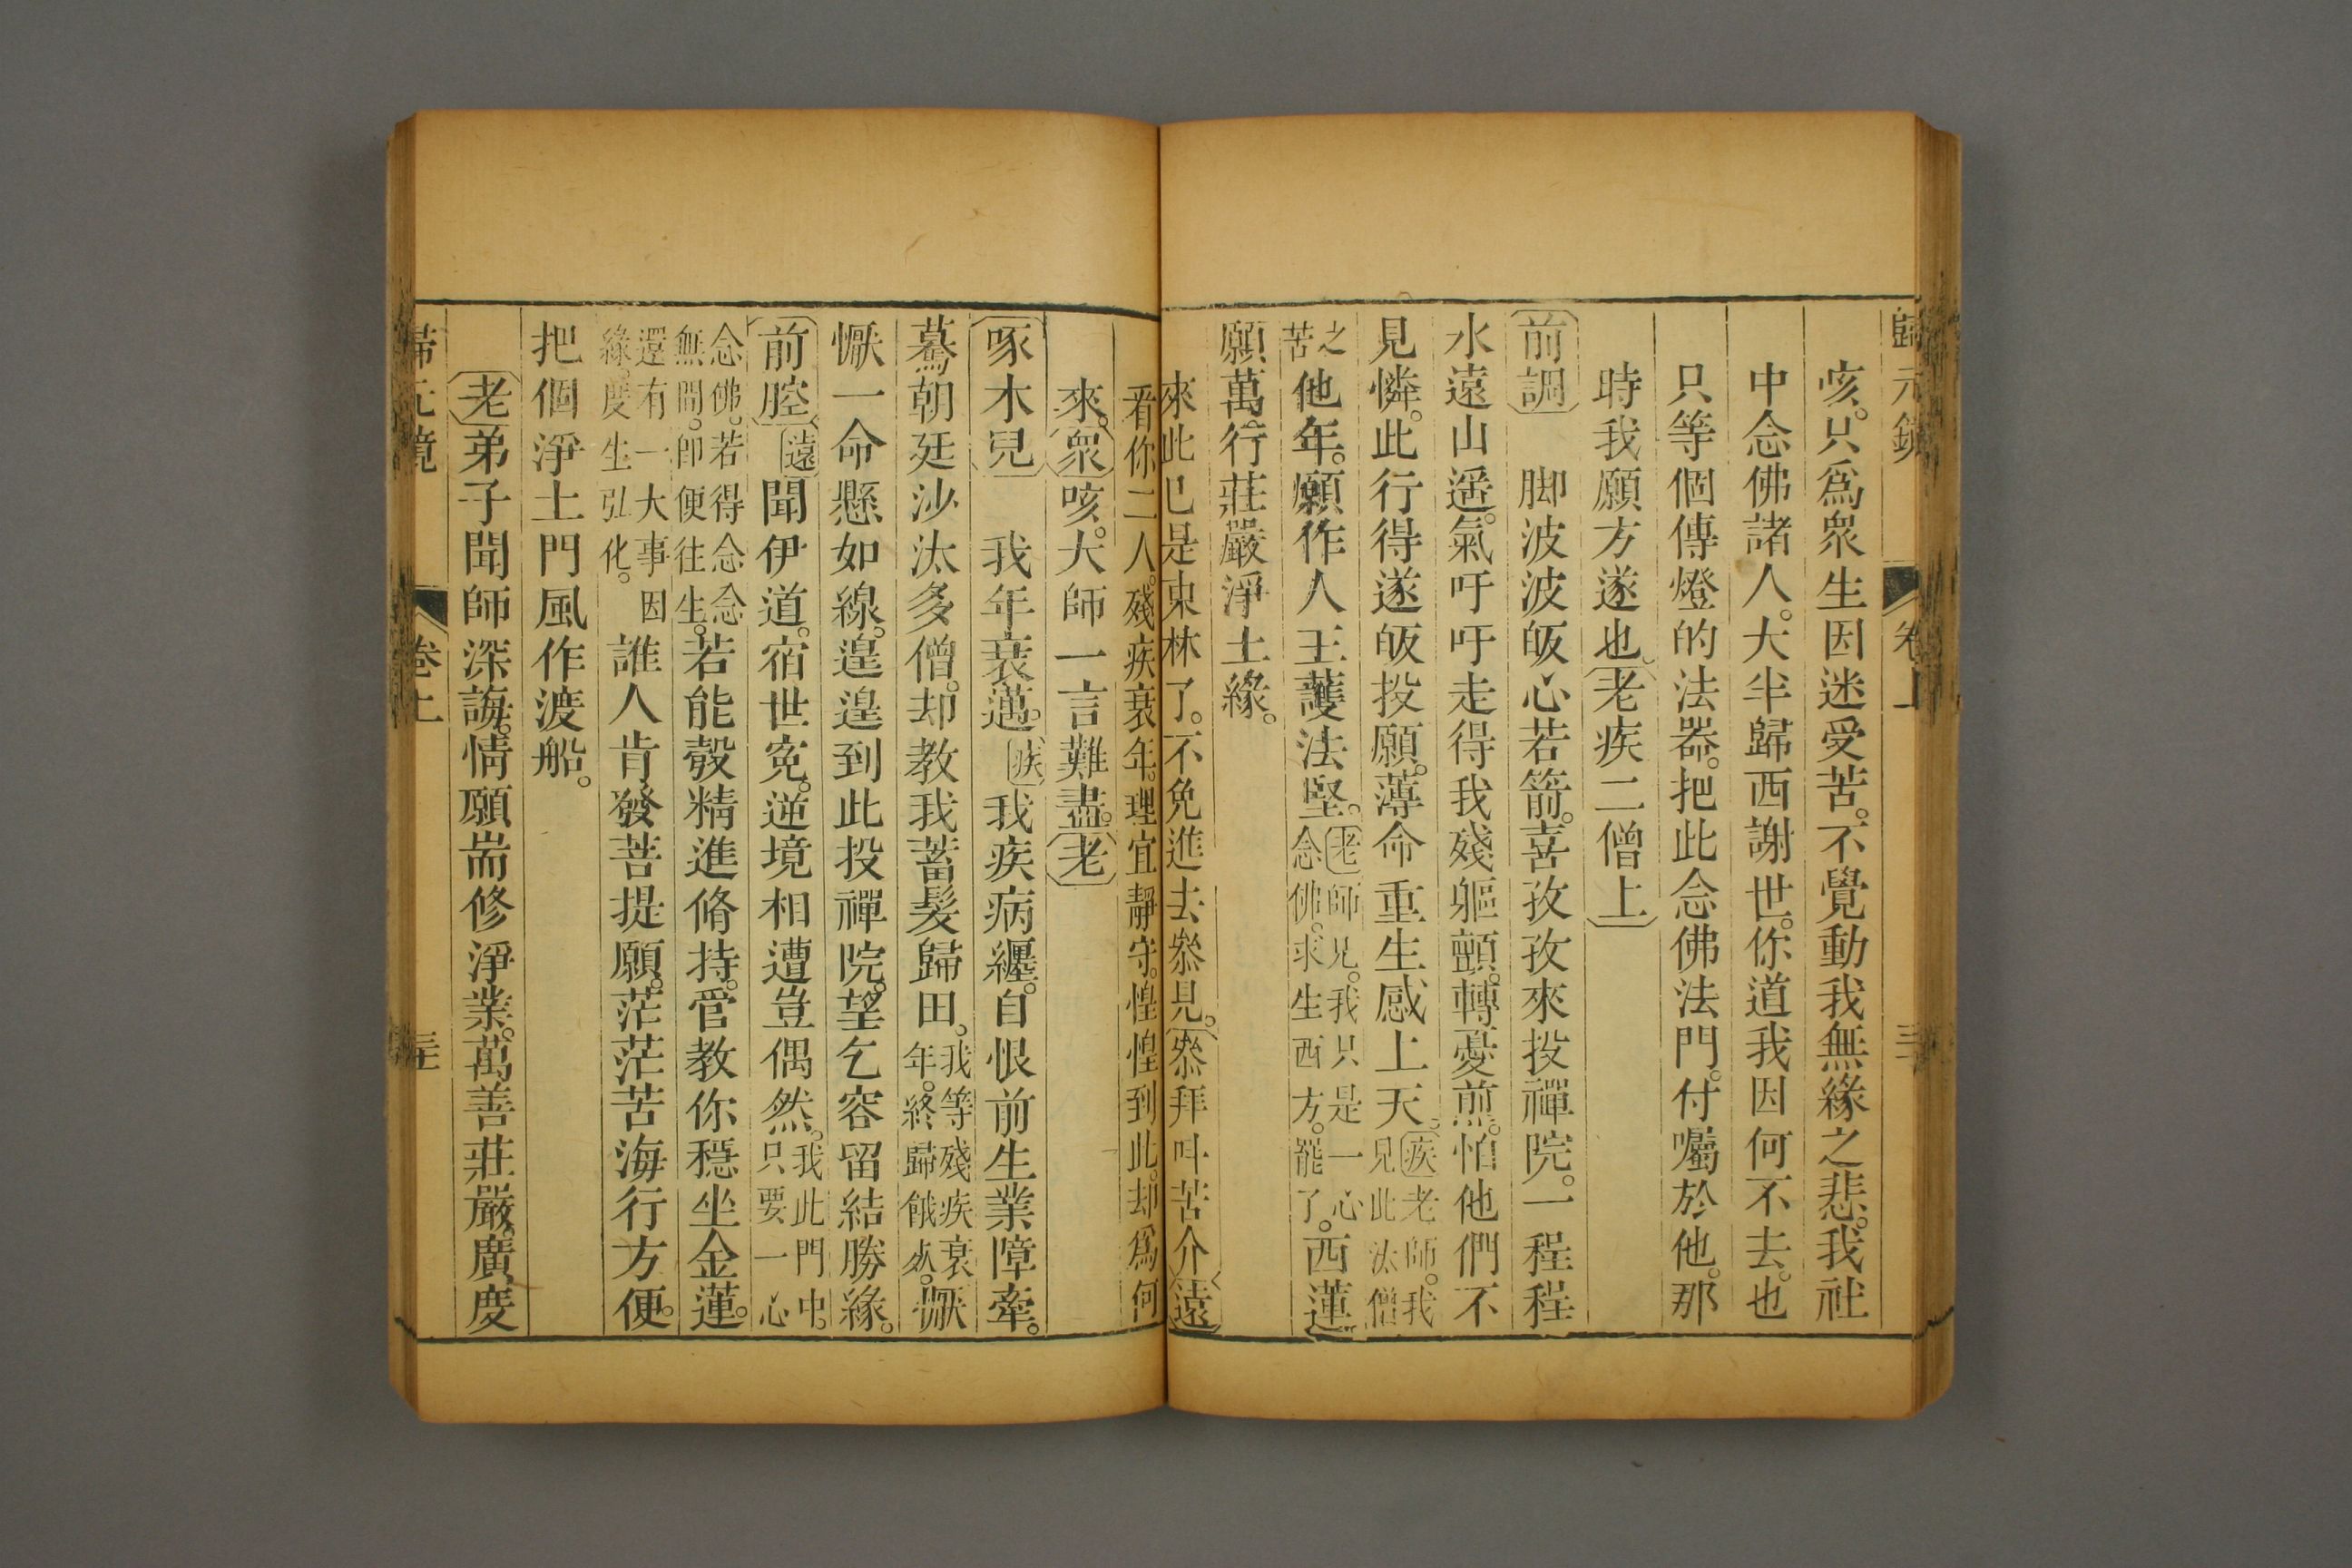 歸元鏡 卷上
咳。只爲衆生因迷受苦。不覺動我無緣之悲。我社
中念佛諸人。大半歸西謝世。你道我因何不去。也
只等個傳燈的法器。把此念佛法門。付囑於他。那
時我願方遂也。老疾二僧上
前調 脚波波皈心若箭。喜孜孜來投禪院。一程程
水遠山遥。氣吁吁走得我殘軀顫。轉憂煎。怕他們不
見憐。此行得遂皈投願。薄命重生感上天。疾老師。我見此汰僧
之苦他年。願作人王護法堅。老師兄。我只是一心念佛。求生西方。罷了。西蓮
願萬行莊嚴淨土緣。
來此已是東林了。不免進去叅見。叅拜呌苦介遠
看你二人。殘疾衰年。理宜靜守。惶惶到此。却爲何
來。衆咳。大師一言難盡。老
啄木兒 我年衰邁。疾我疾病纏。自恨前生業障牽。
驀朝廷沙汰多僧。却教我蓄髮歸田。我等殘疾衰年。終歸餓
懨一命懸如線。遑遑到此投禪院。望乞容留結勝緣。
前腔遠聞伊道。宿世寃。逆境相遭豈偶然。我此門中。只要一心
念佛。若得念念無間。卽便往生。若能彀精進脩持。管教你穩坐金蓮。
還有一大事因緣。度生弘化。誰人肯發菩提願。茫茫苦海行方便。
把個淨土門風作渡船。
老弟子聞師深誨。情願耑修淨業。萬善莊嚴。廣度
歸元鏡 卷上